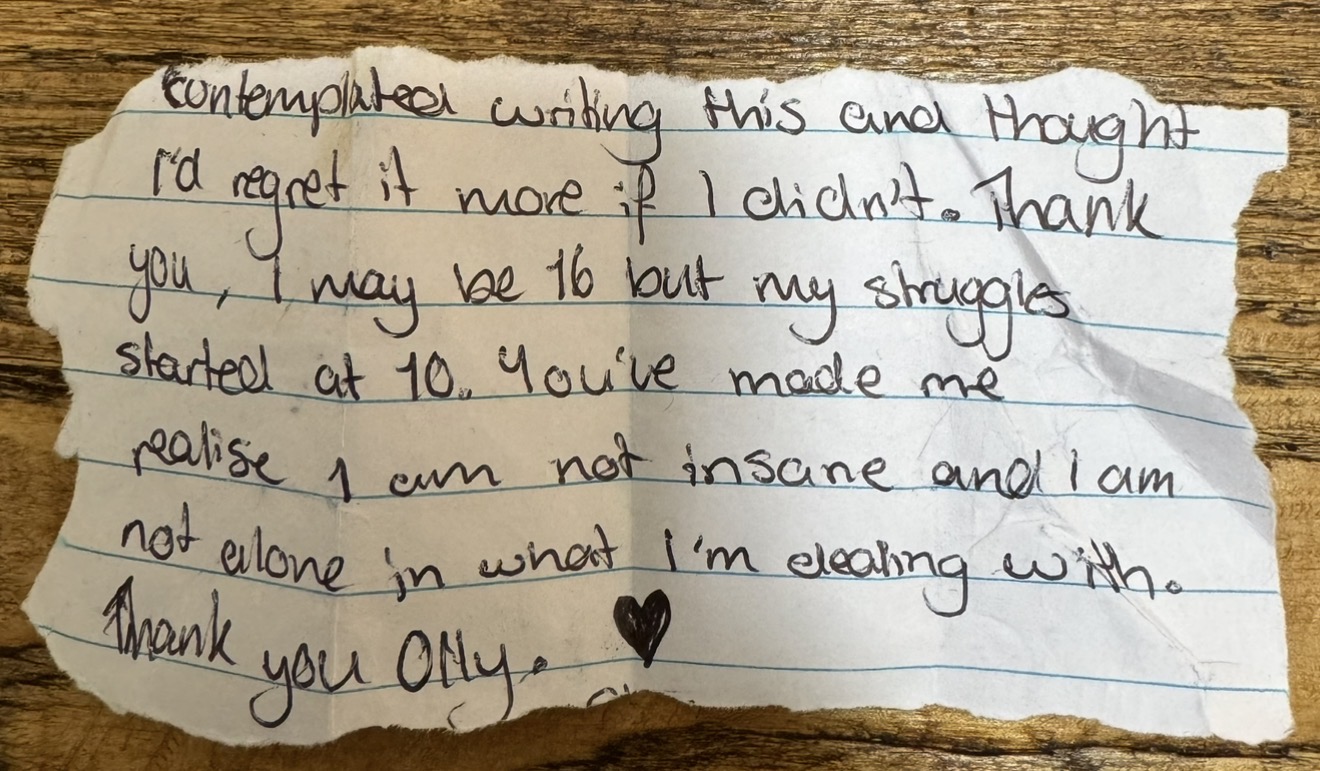 contemplated writing this and thought
I'd regret it more if I didn't. Thank
you, I may be 16 but my struggles
started at 10. You've made me
realise I am not insane and I am
not alone in what I'm dealing with.
Thank you Olly. ♥